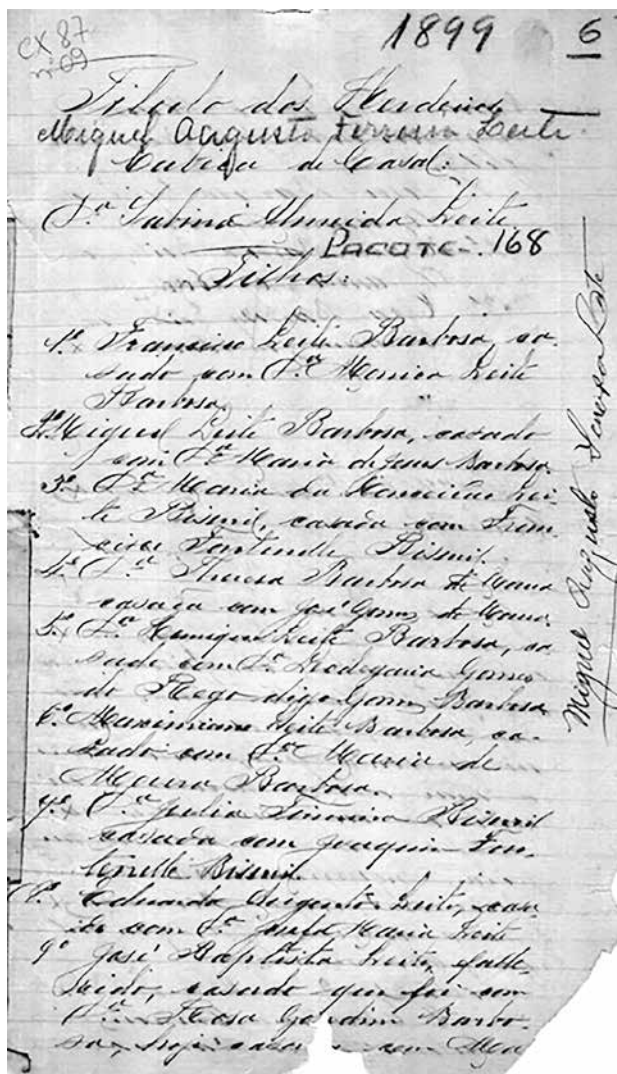 CX 87
nº 09
1899
6
Titulo dos Herdeiros
Miguel Augusto Ferreira Leite
Cabeça de Casal:
D.ª Sabina Almeida Leite
PACOTE-.168
Filhos:
1º Francisco Leite Barbosa, ca-
sado com D.ª Monica Leite
Barbosa.
2º Miguel Leite Barbosa, casado
com D.ª Maria de Jesus Barbosa.
3º D.ª Maria da Conceição Lei-
te Bismil, casada com Fran-
cisco Bismil.
4º D.ª Theresa Barbosa de
casada com José Gomes de
5º Leite Barbosa, ca
sado com D.ª Leodegaria Gomes
do Rego digo Gomes Barbosa
6º Maximiano Leite Barbosa, ca-
sado com D.ª Maria de
Moura Barbosa.
7º D.ª Julia Bismil
casada com Joaquim Fon-
Bismil.
8º Augusto Leite, cas-
com D.ª Maria Leite
9º José Baptista Leite, falle-
cido, casado que foi com
D.ª Rosa Barbo-
sa, hoje com
Miguel Augusto Ferreira Leite